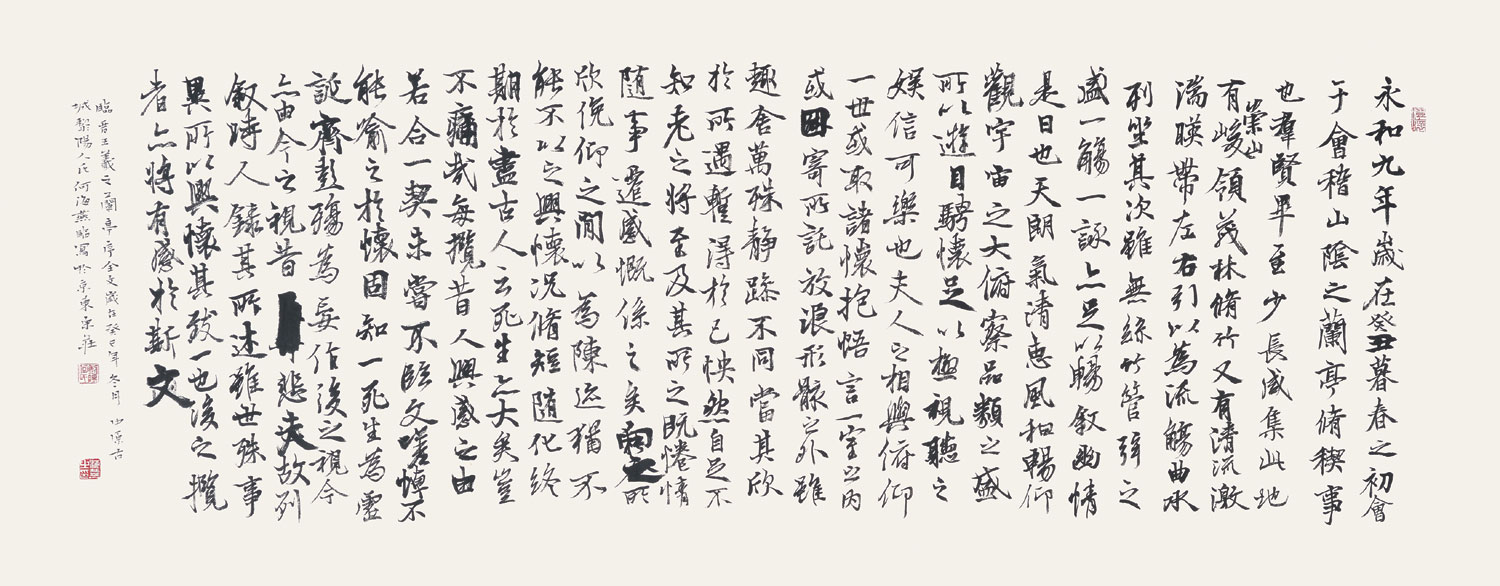 永和九年歲在癸丑暮春之初會
于會稽山陰之蘭亭脩稧事
也羣賢畢至少長咸集此地
有崇山峻領茂林脩竹又有清流激
湍暎帶左右引以為流觴曲水
列坐其次雖無絲竹管弦之
盛一觴一詠亦足以暢敘幽情
是日也天朗氣清惠風和暢仰
觀宇宙之大俯察品類之盛
所以遊目騁懷足以極視聽之
娛信可樂也夫人之相與俯仰
一世或取諸懷抱悟言一室之內
或因寄所託放浪形骸之外雖
趣舍萬殊靜躁不同當其欣
於所遇蹔得於己怏然自足不
知老之將至及其所之既惓情
隨事遷感慨係之矣向之所
欣俛仰之閒以為陳迹猶不
能不以之興懷況脩短隨化終
期於盡古人云死生亦大矣豈
不痛哉每攬昔人興感之由
若合一契未嘗不臨文嗟悼不
能喻之於懷固知一死生為虛
誕齊彭殤為妄作後之視今
亦由今之視昔悲夫故列
敘時人錄其所述雖世殊事
異所以興懷其致一也後之攬
者亦將有感於斯文
臨晉王羲之之蘭亭序全文歲在癸巳年冬月中原古
城黎陽人氏何海燕臨寫於京東宋莊